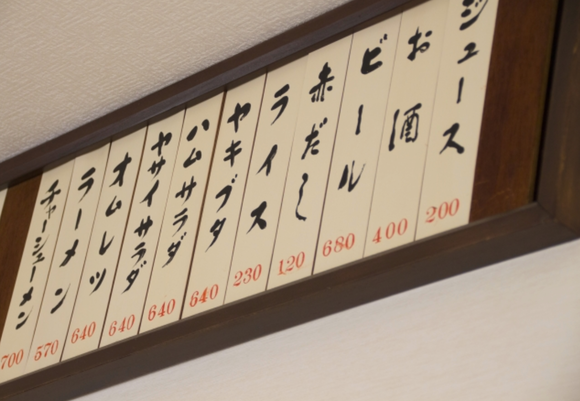 ジュース 200
お酒 400
ビール 680
赤だし 120
ライス 230
ヤキブタ 640
ハムサラダ 640
ヤサイサラダ 640
オムレツ 640
ラーメン 570
チャーシューメン 700